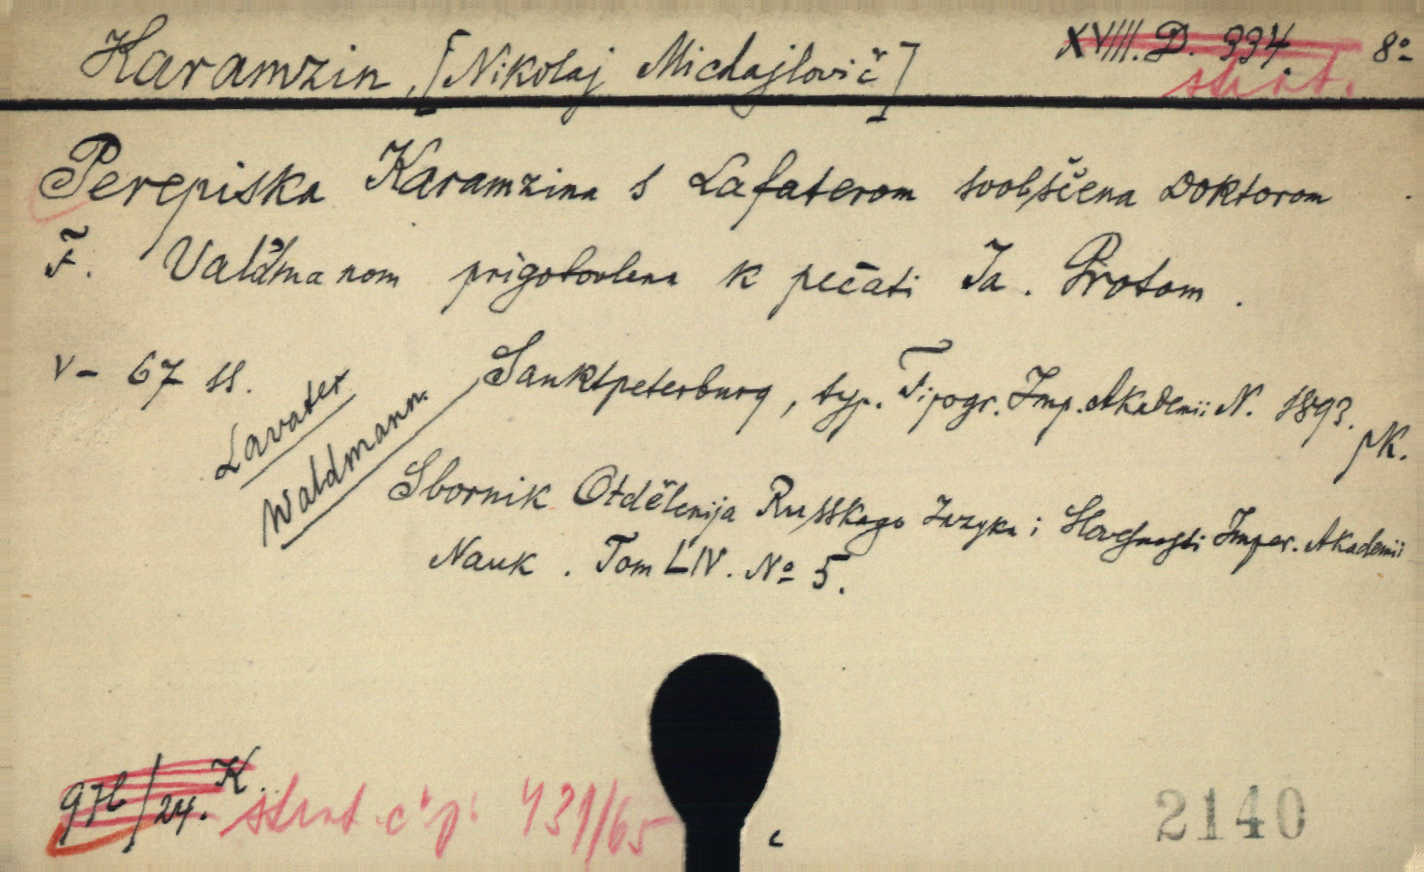 Karamzin, [Nikolaj Michajlovič] XVIII. D. 334. 8º
skrt.
Perepiska Karamzina s Lafaterom soobščena Doktorom
F. Val'dmanom prigotovlena k pečati Ja. Grotom.
V - 67 ss.
Sanktpeterburg, typ. Tipogr. Imp. Akademii N. 1893.
pK.
Lavater
Waldmann.
Sbornik Otdělenija Russkago Jazyka i Slovesnosti Imper. Akademii
Nauk. Tom LIV. Nº 5.
9H/24. K.
č p 431/65
2140